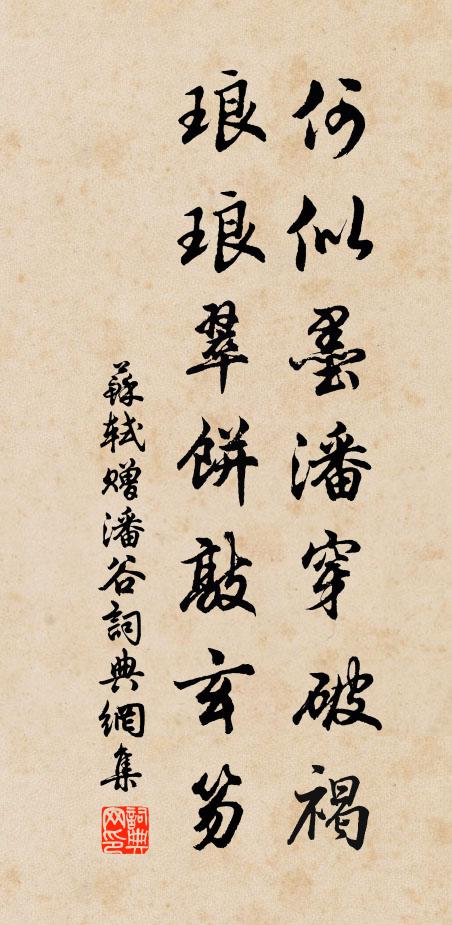 何似墨潘穿破褐
琅琅翠餅敲玄笏
蘇軾贈潘谷詞典網集
詞典网印